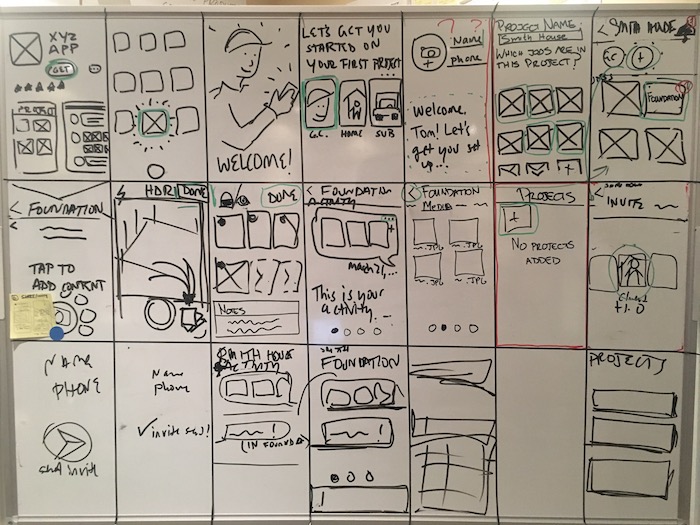 XYZ
APP
GET
PROJECT
WELCOME!
LET'S GET YOU
STARTED ON
YOUR FIRST PROJECT
G.C.
HOME
SUB
? ?
Name
phone
Welcome,
Tom! Let's
get you set
up...
PROJECT NAME:
Smith House
WHICH JOBS ARE IN
THIS PROJECT?
+
< SMITH HOUSE
GC
+
JOBS
FOUNDATION
< FOUNDATION
TAP TO
ADD CONTENT
HDR
DONE
DONE
NOTES
< FOUNDATION
ACTIVITY
+
March 21, ...
This is your
activity. ...
< FOUNDATION
MEDIA
~.JPG
~.JPG
~.JPG
~.JPG
PROJECTS
+
NO PROJECTS
ADDED
INVITE
NAME
PHONE
Name
phone
✓ invite sent!
SMITH HOUSE
ACTIVITY
~ !
(IN FOUNDATION)
FOUNDATION
~ !
PROJECTS